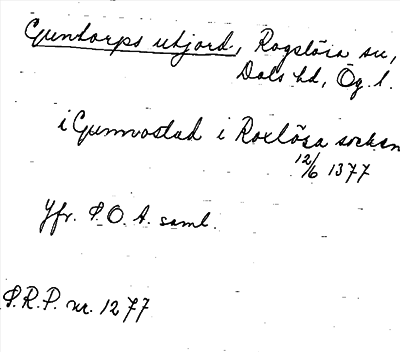 Guntorps utjord, Rogslösa sn,
Dals hd, Ög. l.
i Gunnvostad i Roxlösa socken
12/6 1377
Jfr. S.O.A. saml.
S.R.P. nr. 1277